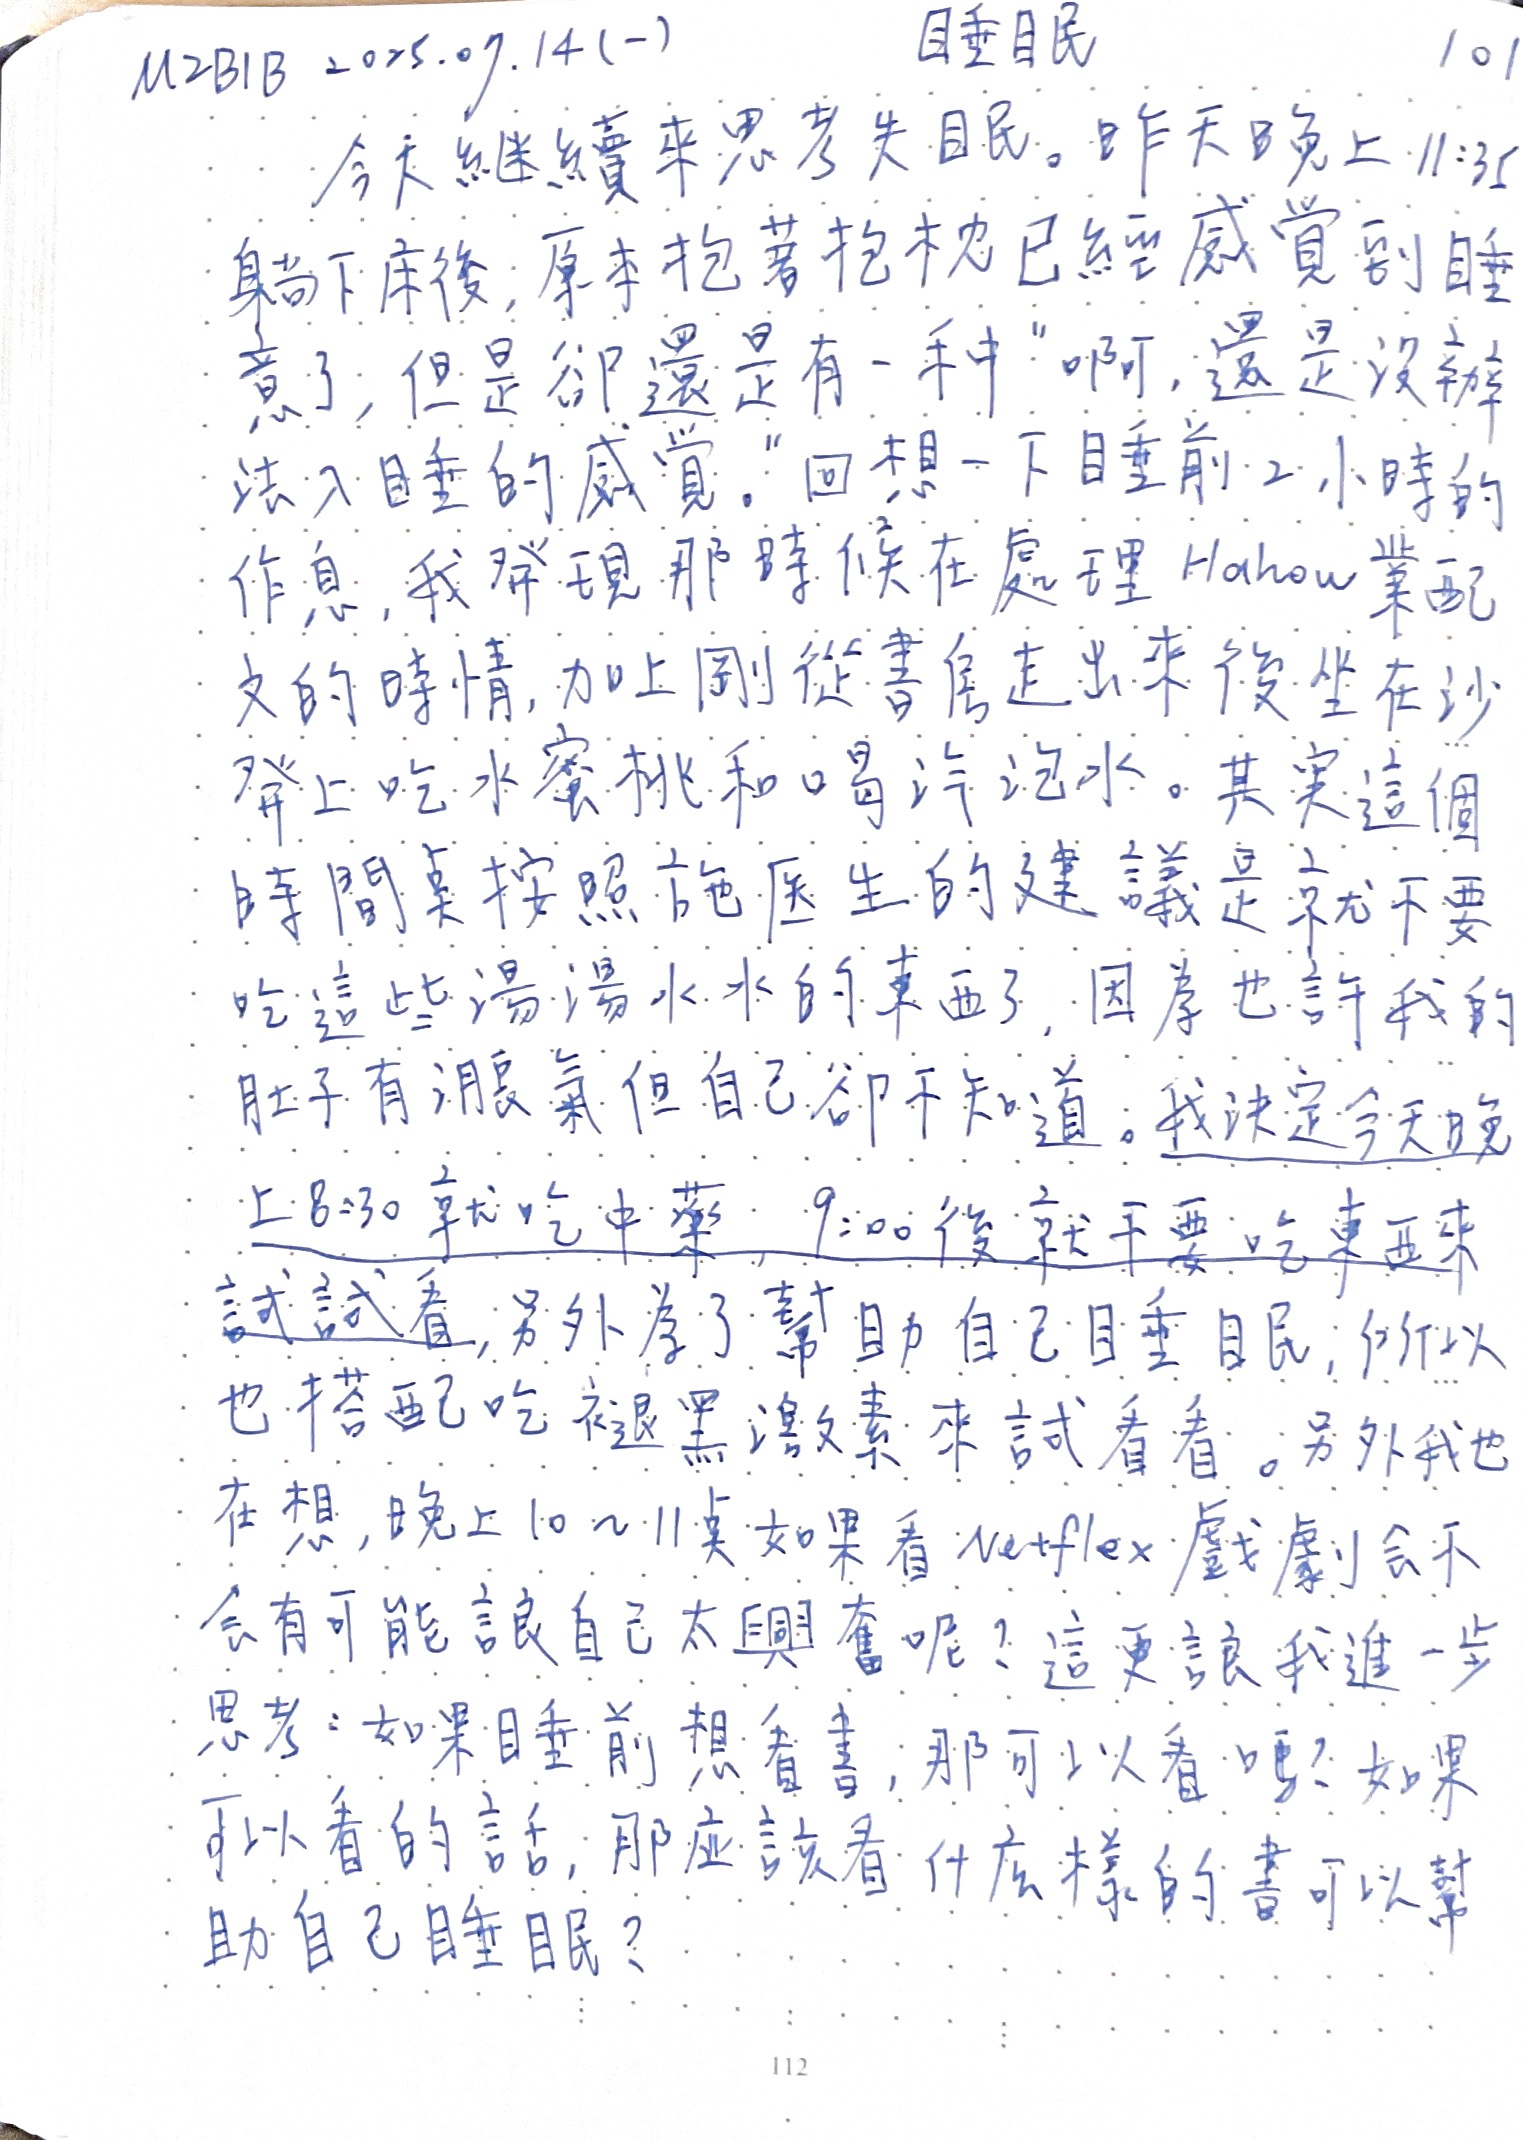 M2B1B 2025.07.14(一) 睡眠 101
今天継續來思考失眠。昨天晚上11:35
躺下床後,原本抱著抱枕已經感覺到睡
意了,但是卻還是有一种"啊,還是沒辦
法入睡的感覺。"回想一下睡前2小時的
作息,我発現那時候在處理Hahow業配
文的時情,加上剛從書房走出來後坐在沙
発上吃水蜜桃和喝汽泡水。其实這個
時間点按照施医生的建議是就不要
吃這些湯湯水水的東西了,因為也許我的
肚子有脹氣但自己卻不知道。我決定今天晚
上8:30就吃中藥,9:00後就不要吃東西來
試試看,另外為了幫助自己睡眠,所以
也搭配吃褪黑激素來試看看。另外我也
在想,晚上10~11点如果看Netflex戲劇会不
会有可能讓自己太興奮呢?這更讓我進一步
思考:如果睡前想看書,那可以看嗎?如果
可以看的話,那应該看什麼樣的書可以幫
助自己睡眠?
112